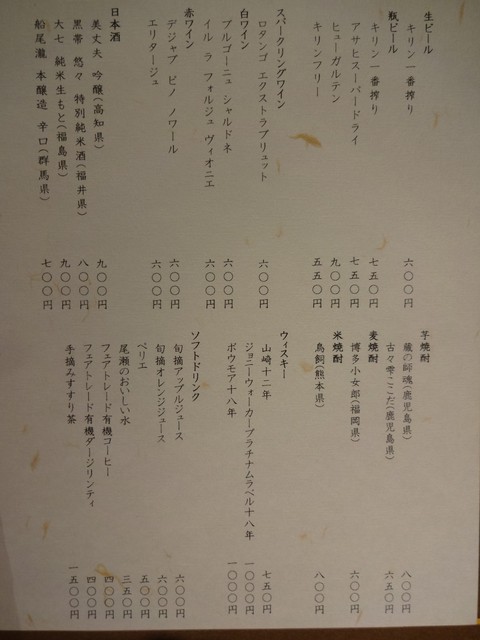 生ビール
キリン一番搾り 六〇〇円
瓶ビール
キリン一番搾り 七五〇円
アサヒスーパードライ 七五〇円
ヒューガルテン 九〇〇円
キリンフリー 五五〇円
スパークリングワイン
ロタンゴ エクストラブリュット 六〇〇円
白ワイン
ブルゴーニュ シャルドネ 六〇〇円
イル ラ フォルジュ ヴィオニエ 六〇〇円
赤ワイン
デジャブ ピノ ノワール 六〇〇円
エリタージュ 六〇〇円
日本酒
美丈夫 吟醸(高知県) 九〇〇円
黒帯 悠々 特別純米酒(福井県) 八〇〇円
大七 純米生もと(福島県) 九〇〇円
船尾瀧 本醸造 辛口(群馬県) 七〇〇円
芋焼酎
蔵の師魂(鹿児島県) 八〇〇円
古々雫ここだ(鹿児島県) 六五〇円
麦焼酎
博多小女郎(福岡県) 六〇〇円
米焼酎
鳥飼(熊本県) 八〇〇円
ウィスキー
山崎十二年 七五〇円
ジョニーウォーカープラチナムラベル十八年 一〇〇〇円
ボウモア十八年 一〇〇〇円
ソフトドリンク
旬摘アップルジュース 六〇〇円
旬摘オレンジジュース 六〇〇円
ペリエ 五〇〇円
尾瀬のおいしい水 三五〇円
フェアトレード有機コーヒー 四〇〇円
フェアトレード有機ダージリンティ 四〇〇円
手摘みすずり茶 一五〇〇円